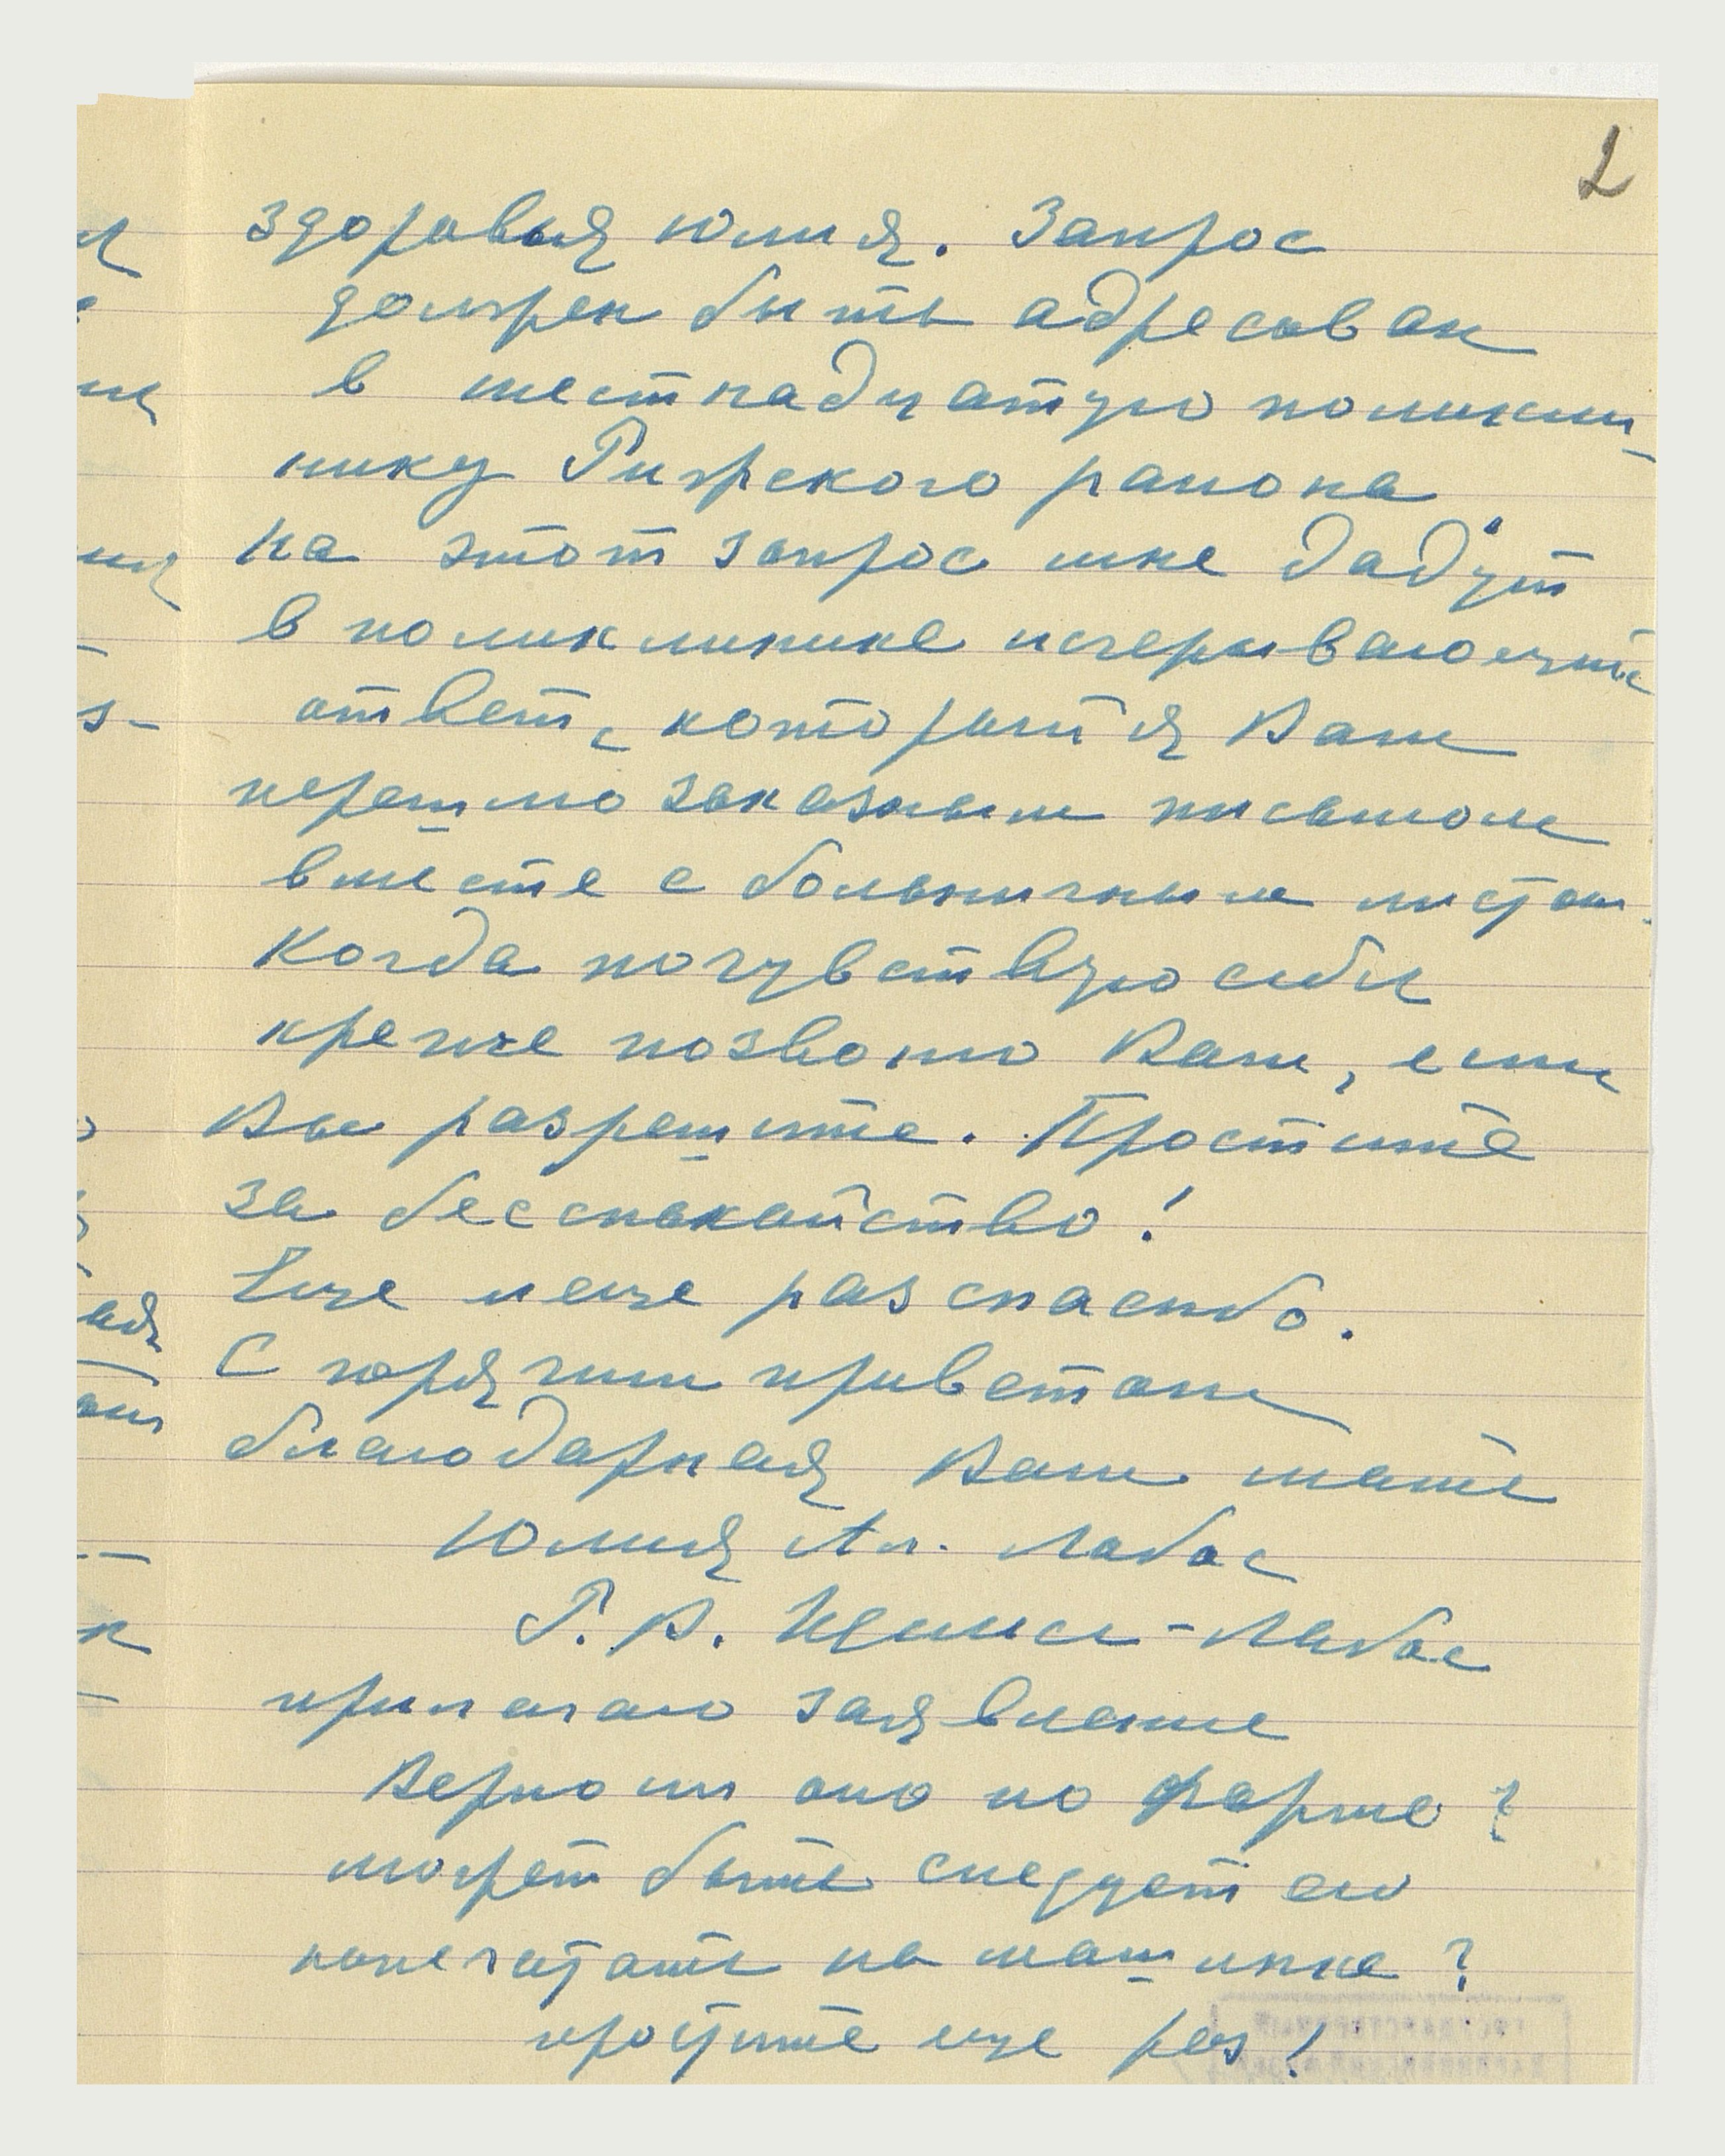 2
здоровья Юлия. Запрос
должен быть адресован
в шестнадцатую поликли-
нику Рижского района,
На этот запрос мне дадут
в поликлинике исчерпывающий
ответ, который я Вам
перешлю заказным письмом
вместе с больничным листом.
Когда почувствую себя
крепче позвоню Вам, если
Вы разрешите. Простите
за бесспокайство!
Еще и еще раз спасибо.
С горячим приветом
благодарная Вам мать
Юлия Ал. Лабас
Р. В. -Лабас
прилагаю заявление
Верно ли оно по форме?
может быть следует его
напечатать на машинке?
простите еще раз!